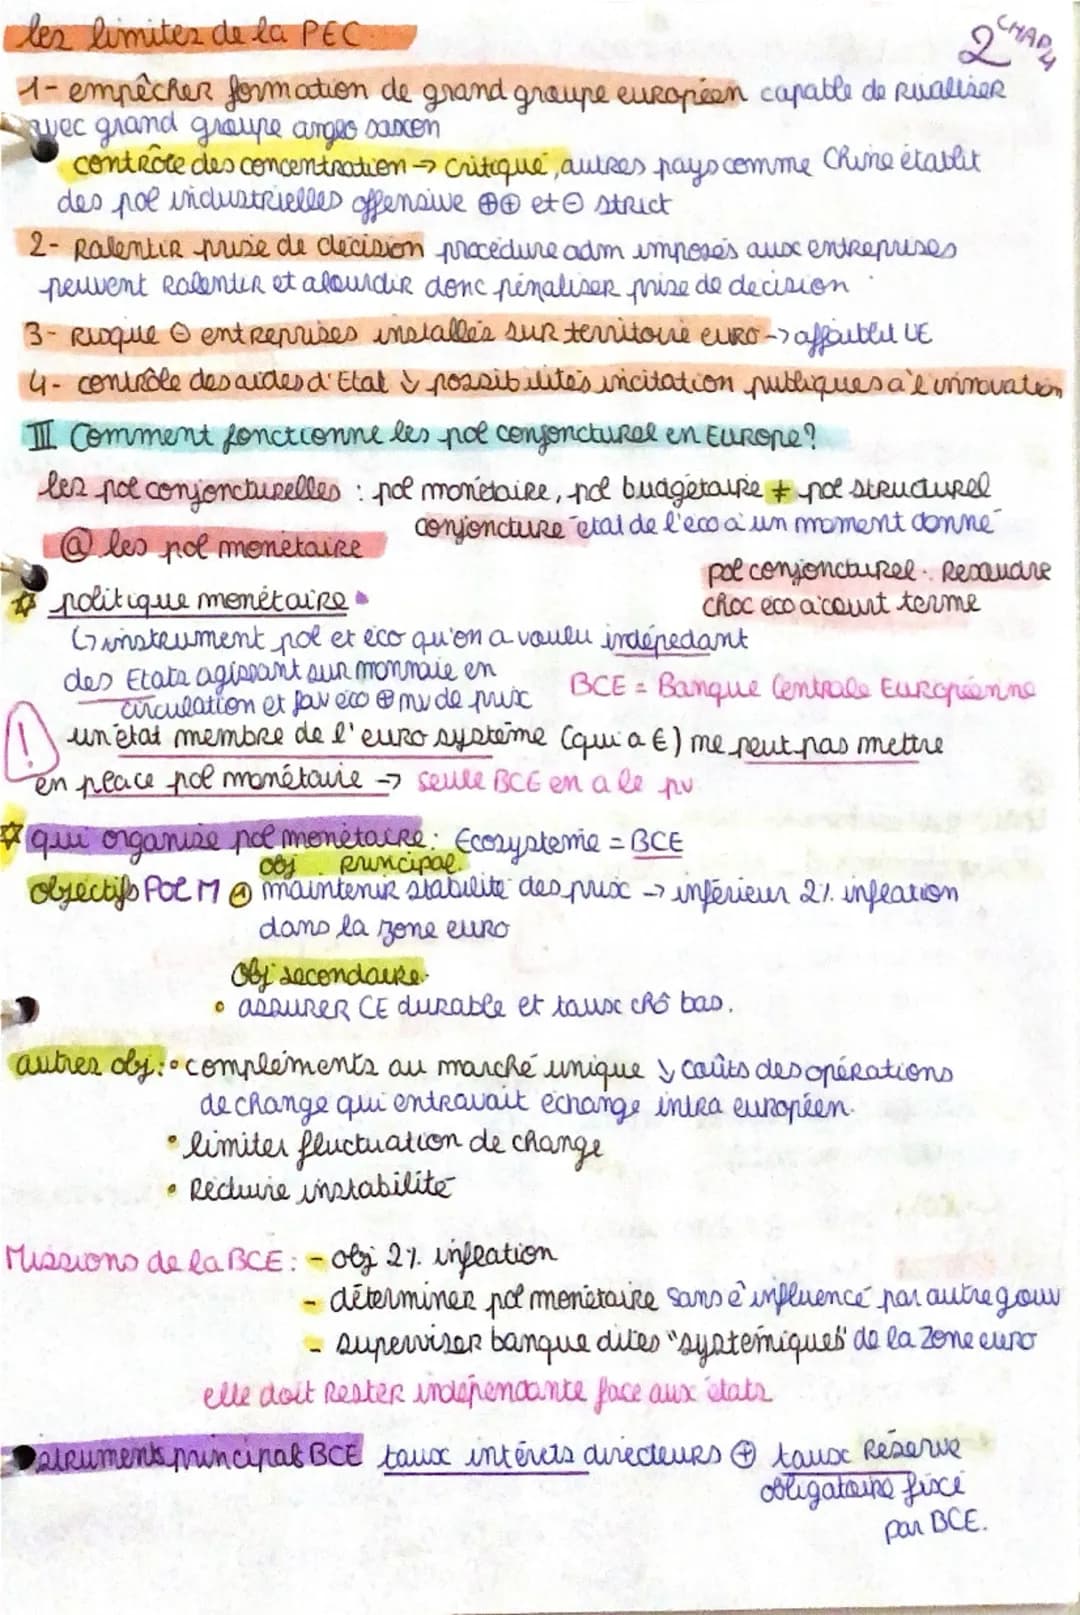 les limites de la PEC
2 CHAP4
1- empêcher formation de grand groupe européen capable de rivaliser
avec grand groupe anglo saxon
contrôle des concentration → critiqué, autres pays comme Chine établit
des pol industrielles offensive ⊕⊕ et ⊖ strict
2- Ralentir prise de décision procédure adm imposés aux entreprises
peuvent ralentir et alourdir donc pénaliser prise de decision
3- Risque ⊖ entreprises installés sur territoire euro → affaiblit UE
4- contrôle des aides d'Etat ↓ possibilités incitation publiques à l'innovation
III Comment fonctionne les pol conjoncturel en Europe?
les pol conjoncturelles : pol monétaire, pol budgétaire ≠ pol structurel
conjoncture état de l'éco à un moment donné
@ les pol monétaire
pol conjoncturel. Resoudre
choc eco à court terme
politique monétaire
↳ instrument pol et éco qu'on a voulu indépedant
des Etats agissant sur monnaie en
circulation et fav eco ⊕ nv de prix
BCE = Banque Centrale Européenne
! un état membre de l'euro système (qui a €) ne peut pas mettre
en place pol monétaire → seule BCE en a le pv
☆ qui organise pol monétaire: Ecosysteme = BCE
obj principal
objectifs POL M @ maintenir stabilité des prix → inférieur 2% inflation
dans la zone euro
Obj secondaire
• assurer CE durable et taux chô bas.
autres obj: • compléments au marché unique ↓ coûts des opérations
de change qui entravait échange intra européen.
• limiter fluctuation de change
• Réduire instabilité
Missions de la BCE: - obj 2% inflation
- déterminer pol monétaire sans ê influencé par autre gouv
- superviser banque dites "systémiques" de la Zone euro
elle doit rester indépendante face aux états
struments principal BCE taux intérêts directeurs ⊕ taux Réserve
obligatoire fixé
par BCE.